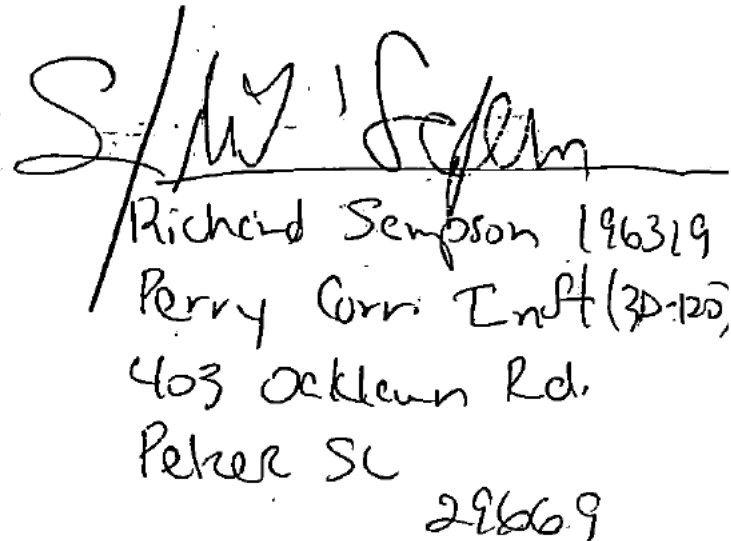 S/
Richard Sempson 196319
Perry Corr. Inst (3D-120)
403 Oaklawn Rd.
Pelzer SC
29669